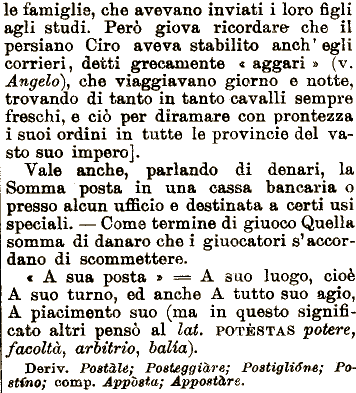 le famiglie, che avevano inviati i loro figli
agli studi. Però giova ricordare che il
persiano Ciro aveva stabilito anch' egli
corrieri, detti grecamente « aggari » (v.
Angelo), che viaggiavano giorno e notte,
trovando di tanto in tanto cavalli sempre
freschi, e ciò per diramare con prontezza
i suoi ordini in tutte le provincie del va-
sto suo impero].
Vale anche, parlando di denari, la
Somma posta in una cassa bancaria o
presso alcun ufficio e destinata a certi usi
speciali. — Come termine di giuoco Quella
somma di danaro che i giuocatori s'accor-
dano di scommettere.
« A sua posta » = A suo luogo, cioè
A suo turno, ed anche A tutto suo agio,
A piacimento suo (ma in questo signifi-
cato altri pensò al lat. POTÈSTAS potere,
facoltà, arbitrio, balìa).
Deriv. Postàle; Posteggiàre; Postiglióne; Po-
stíno; comp. Appòsta; Appostàre.